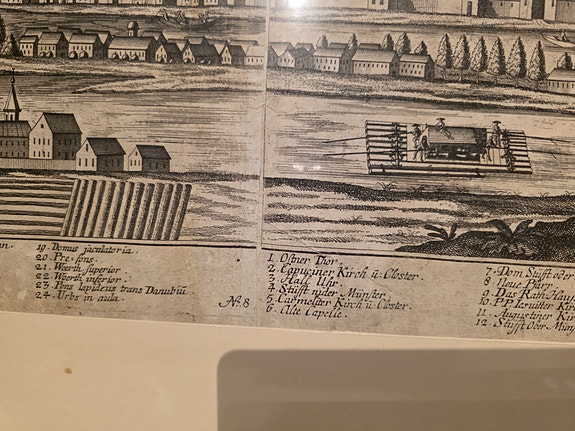 an.
19. Domus jaculatoria.
20. Pre-sons.
21. Woerth superior
22. Woerth inferior
23. Pons lapideus trans Danubiũ
24. Urbs in aula.
No. 8
1. Ostner Thor.
2. Capuciner Kirch ũ: Closter.
3. Hall Uhr.
4. Stüfft nider Münster.
5. Carmeliter Kirch ũ: Closter.
6. Alte Capelle.
7. Dom Stüfft oder
8. Neue Pfarr
9. Das Rath Hauß
10. P.P. Iesuitter Kir
11. Augustiner Kir
12. Stüfft Ober Mün